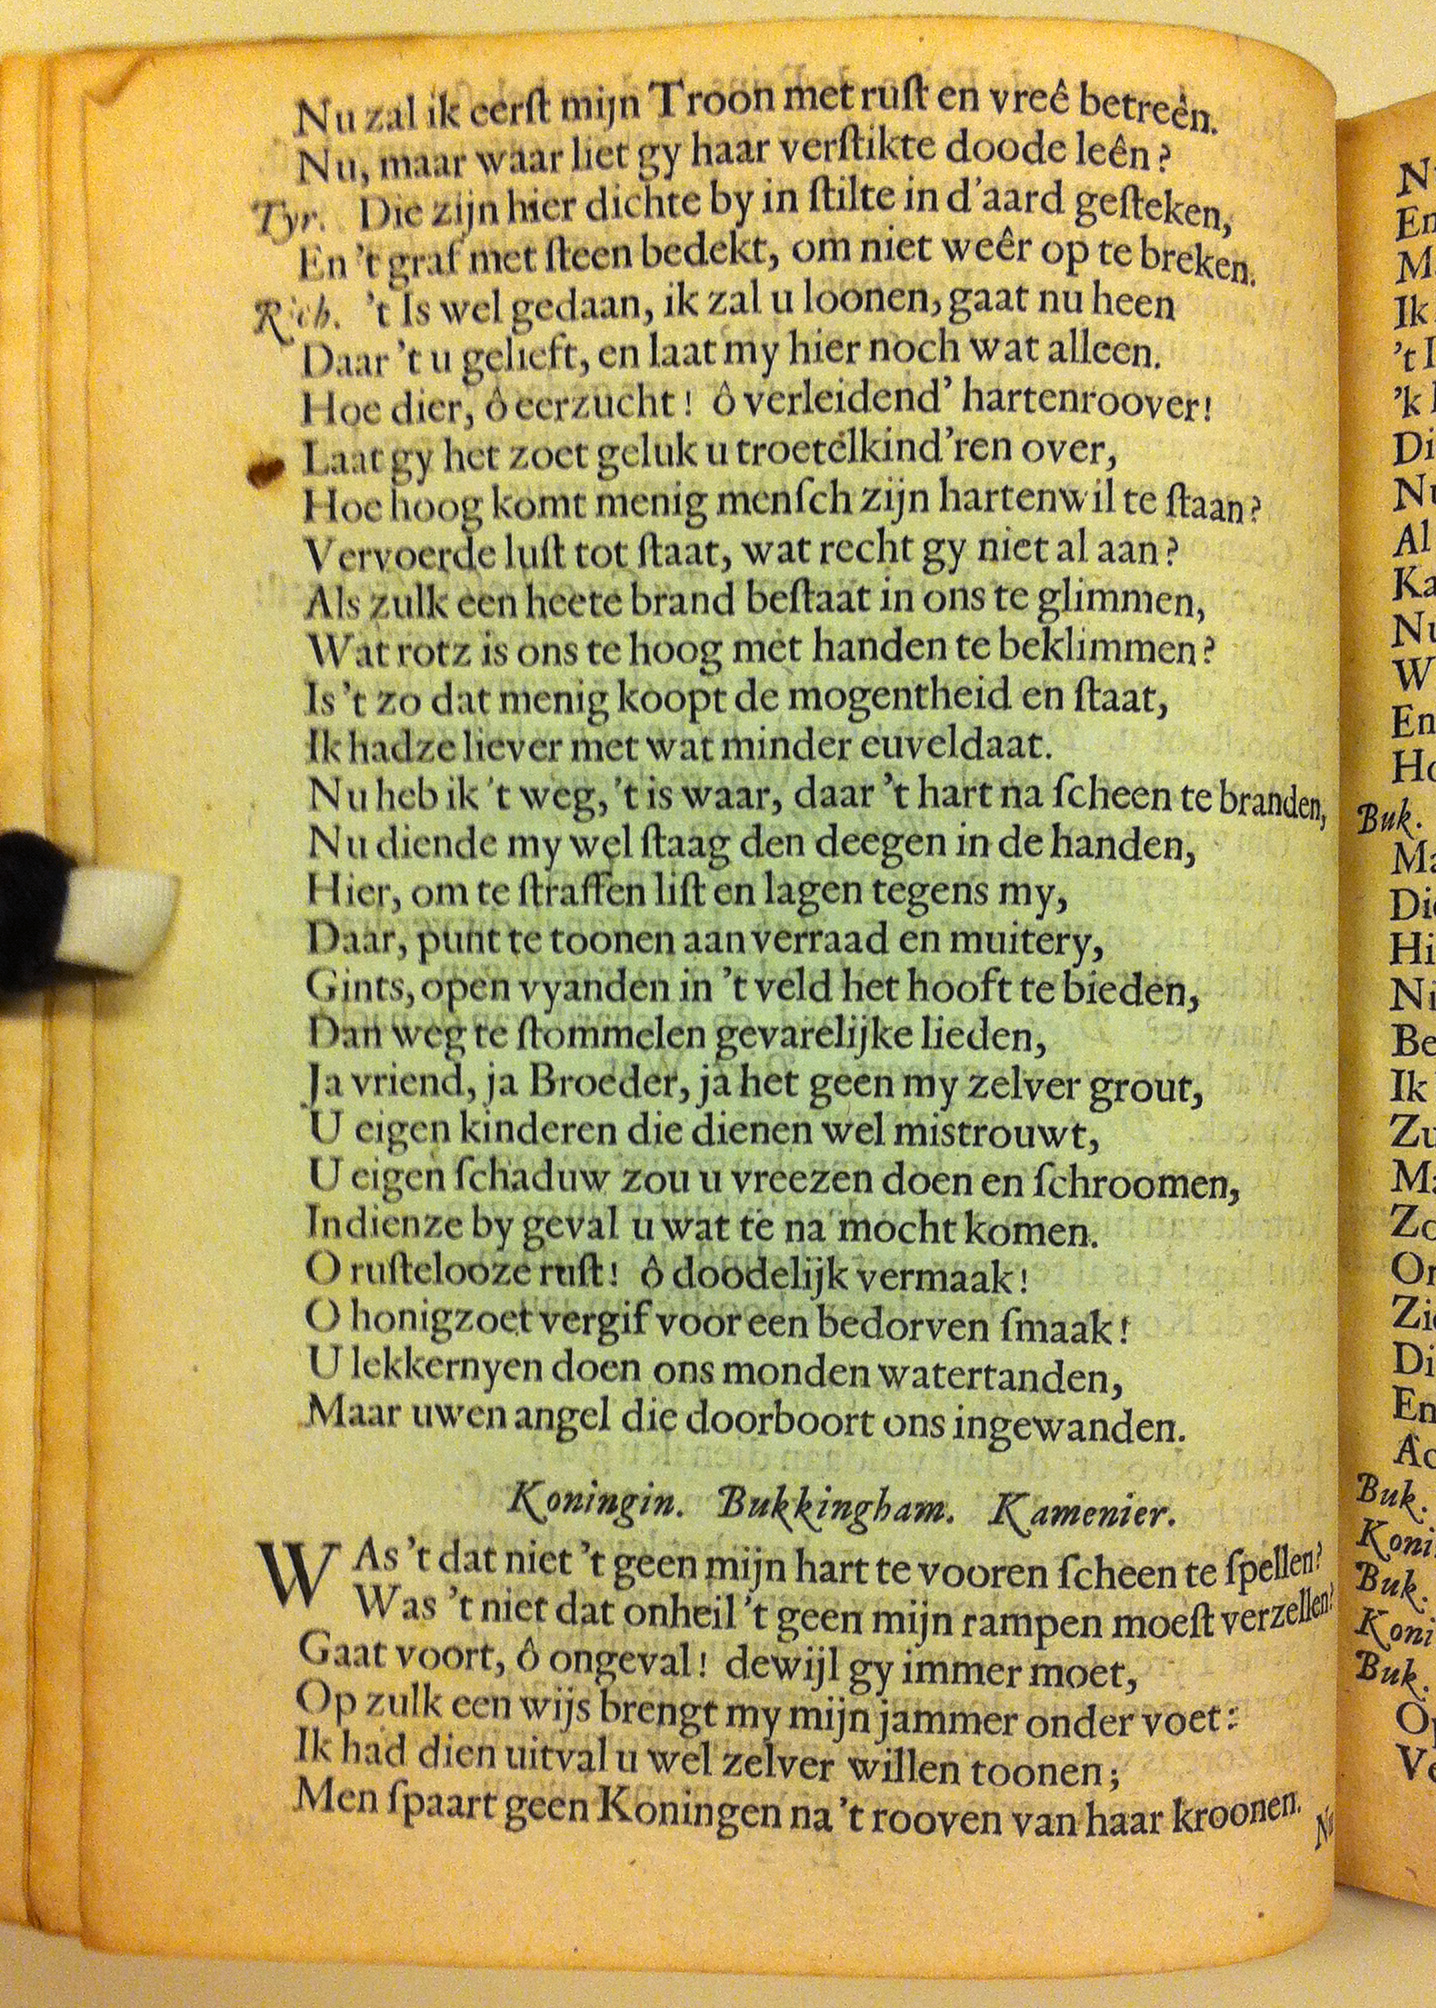 Nu zal ik eerſt mijn Troon met ruſt en vreê betreên.
Nu, maar waar liet gy haar verſtikte doode leên?
Tyr. Die zijn hier dichte by in ſtilte in d'aard geſteken,
En 't graf met ſteen bedekt, om niet weêr op te breken.
Rich. 't Is wel gedaan, ik zal u loonen, gaat nu heen
Daar 't u gelieft, en laat my hier noch wat alleen.
Hoe dier, ô eerzucht! ô verleidend' hartenroover!
Laat gy het zoet geluk u troetelkind'ren over,
Hoe hoog komt menig menſch zijn hartenwil te ſtaan?
Vervoerde luſt tot ſtaat, wat recht gy niet al aan?
Als zulk een heete brand beſtaat in ons te glimmen,
Wat rotz is ons te hoog met handen te beklimmen?
Is 't zo dat menig koopt de mogentheid en ſtaat,
Ik hadze liever met wat minder euveldaat.
Nu heb ik 't weg, 't is waar, daar 't hart na ſcheen te branden,
Nu diende my wel ſtaag den deegen in de handen,
Hier, om te ſtraffen liſt en lagen tegens my,
Daar, punt te toonen aan verraad en muitery,
Gints, open vyanden in 't veld het hooft te bieden,
Dan weg te ſtommelen gevarelijke lieden,
Ja vriend, ja Broeder, ja het geen my zelver grout,
U eigen kinderen die dienen wel mistrouwt,
U eigen ſchaduw zou u vreezen doen en ſchroomen,
Indienze by geval u wat te na mocht komen.
O ruſtelooze ruſt! ô doodelijk vermaak!
O honigzoet vergif voor een bedorven ſmaak!
U lekkernyen doen ons monden watertanden,
Maar uwen angel die doorboort ons ingewanden.
Koningin. Bukkingham. Kamenier.
WAs 't dat niet 't geen mijn hart te vooren ſcheen te ſpellen?
Was 't niet dat onheil 't geen mijn rampen moeſt verzellen?
Gaat voort, ô ongeval! dewijl gy immer moet,
Op zulk een wijs brengt my mijn jammer onder voet:
Ik had dien uitval u wel zelver willen toonen;
Men ſpaart geen Koningen na 't rooven van haar kroonen.
En
Ik
't
'k
Al
En
Buk.
Ik
En
Buk.
Buk.
Buk.